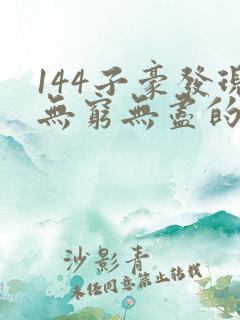 144子豪發現
無窮無盡的
沙影青
未经同意禁止转载